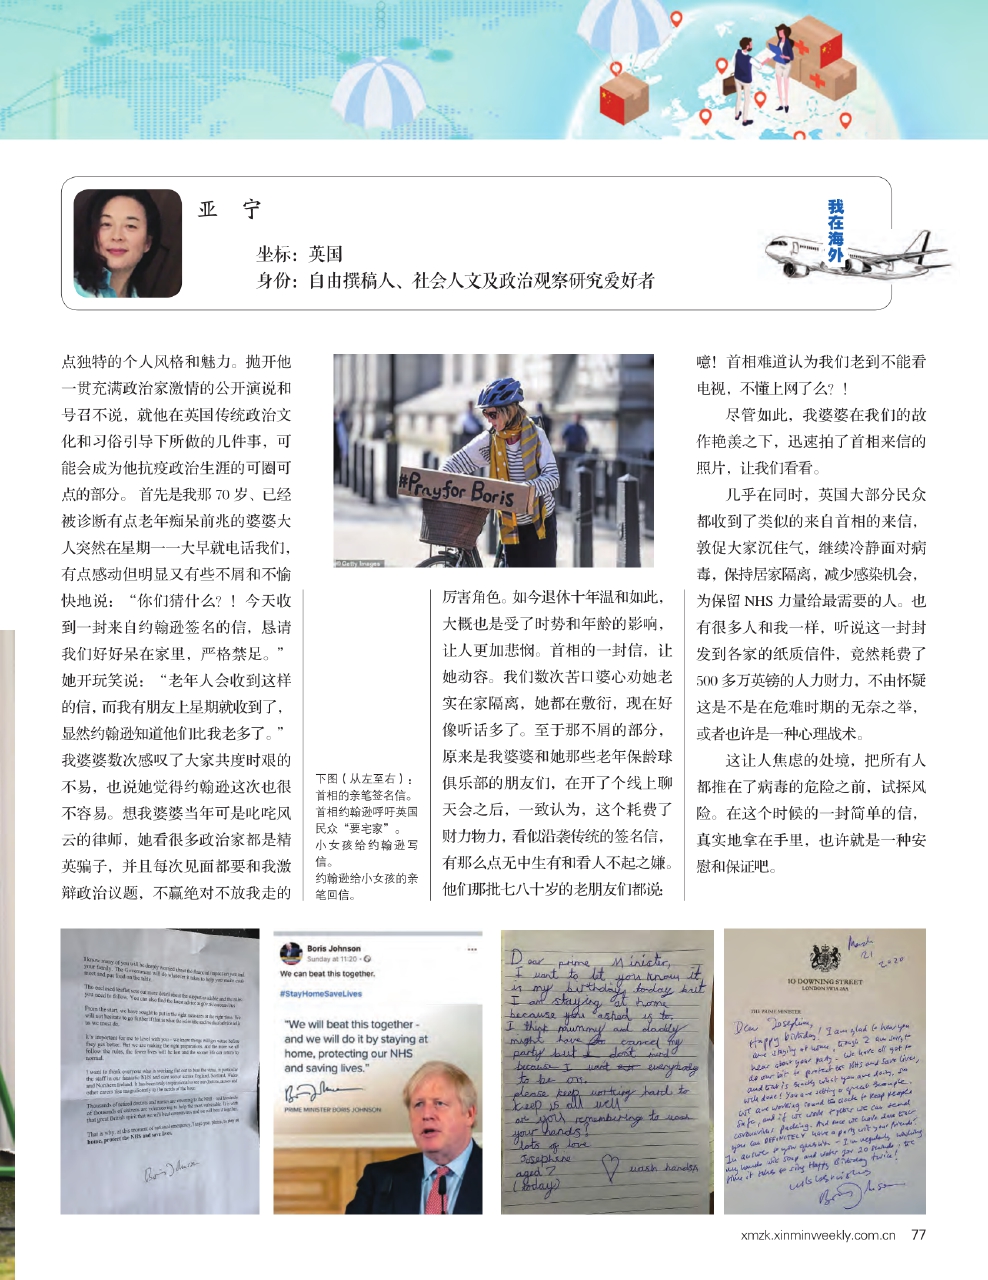 亚 宁
坐标：英国
身份：自由撰稿人、社会人文及政治观察研究爱好者
我在海外
点独特的个人风格和魅力。抛开他
一贯充满政治家激情的公开演说和
号召不说，就他在英国传统政治文
化和习俗引导下所做的几件事，可
能会成为他抗疫政治生涯的可圈可
点的部分。 首先是我那 70 岁、已经
被诊断有点老年痴呆前兆的婆婆大
人突然在星期一一大早就电话我们，
有点感动但明显又有些不屑和不愉
快地说：“你们猜什么？！今天收
到一封来自约翰逊签名的信，恳请
我们好好呆在家里，严格禁足。”
她开玩笑说：“老年人会收到这样
的信，而我有朋友上星期就收到了，
显然约翰逊知道他们比我老多了。”
我婆婆数次感叹了大家共度时艰的
不易，也说她觉得约翰逊这次也很
不容易。想我婆婆当年可是叱咤风
云的律师，她看很多政治家都是精
英骗子，并且每次见面都要和我激
辩政治议题，不赢绝对不放我走的
#Pray for Boris
© Getty Images
下图（从左至右）：
首相的亲笔签名信。
首相约翰逊呼吁英国
民众“要宅家”。
小女孩给约翰逊写
信。
约翰逊给小女孩的亲
笔回信。
厉害角色。如今退休十年温和如此，
大概也是受了时势和年龄的影响，
让人更加悲悯。首相的一封信，让
她动容。我们数次苦口婆心劝她老
实在家隔离，她都在敷衍，现在好
像听话多了。至于那不屑的部分，
原来是我婆婆和她那些老年保龄球
俱乐部的朋友们，在开了个线上聊
天会之后，一致认为，这个耗费了
财力物力，看似沿袭传统的签名信，
有那么点无中生有和看人不起之嫌。
他们那批七八十岁的老朋友们都说：
噫！首相难道认为我们老到不能看
电视，不懂上网了么？！
尽管如此，我婆婆在我们的故
作艳羡之下，迅速拍了首相来信的
照片，让我们看看。
几乎在同时，英国大部分民众
都收到了类似的来自首相的来信，
敦促大家沉住气，继续冷静面对病
毒，保持居家隔离，减少感染机会，
为保留 NHS 力量给最需要的人。也
有很多人和我一样，听说这一封封
发到各家的纸质信件，竟然耗费了
500 多万英镑的人力财力，不由怀疑
这是不是在危难时期的无奈之举，
或者也许是一种心理战术。
这让人焦虑的处境，把所有人
都推在了病毒的危险之前，试探风
险。在这个时候的一封简单的信，
真实地拿在手里，也许就是一种安
慰和保证吧。
Boris Johnson
Sunday at 11:20
We can beat this together.
#StayHomeSaveLives
"We will beat this together -
and we will do it by staying at
home, protecting our NHS
and saving lives."
PRIME MINISTER BORIS JOHNSON
Dear prime Minister,
I want to let you know it
is my birthday today but
I am staying at home
because you asked us to.
I think mummy and daddy
might have to cancel my
party but I don't mind
because I want everybody
to be ok.
please keep working hard to
keep us all well
are you remembering to wash
your hands!
lots of love
Josephine
aged 7
(today)
wash hands
March
21
2020
10 DOWNING STREET
LONDON SW1A 2AA
THE PRIME MINISTER
Dear Josephine,
Happy birthday! I am glad to hear you
are staying at home, though I am sorry to
hear about your party. We have all got to
do our bit to protect the NHS and save lives,
and that is exactly what you are doing, so
well done! You are setting a great example.
We are working round the clock to keep people
safe, and if we work together we can send
coronavirus packing. And once we have done that
you can DEFINITELY have a party with your friends.
In answer to your question - I'm regularly washing
my hands with soap and water for 20 seconds, the
time it takes to sing Happy Birthday twice!
xmzk.xinminweekly.com.cn 77